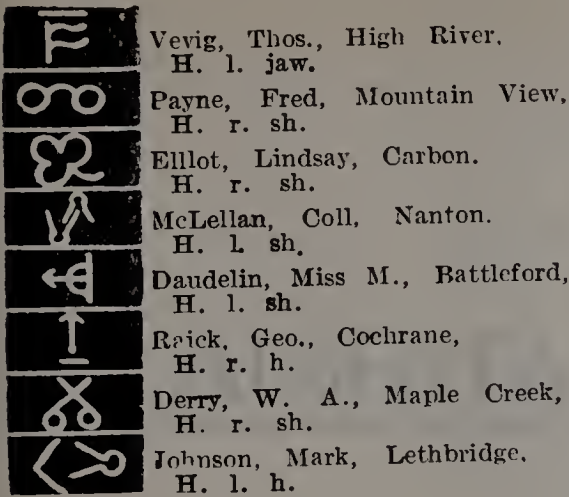 Vevig, Thos., High River,
H. l. jaw.
Payne, Fred, Mountain View,
H. r. sh.
Elllot, Lindsay, Carbon.
H. r. sh.
McLellan, Coll, Nanton.
H. l. sh.
Daudelin, Miss M., Battleford,
H. l. sh.
Raick, Geo., Cochrane,
H. r. h.
Derry, W. A., Maple Creek,
H. r. sh.
Johnson, Mark, Lethbridge.
H. l. h.